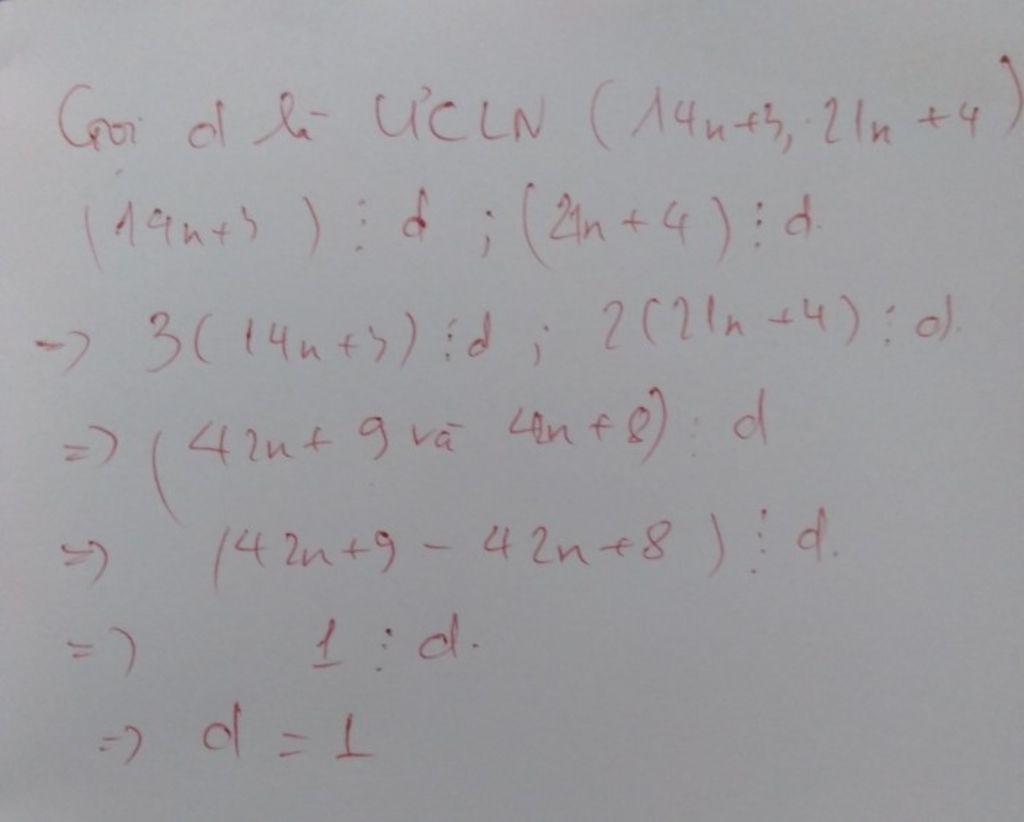 Gọi d là ƯCLN (14n+3, 21n+4)
(14n+3) ⋮ d ; (21n+4) ⋮ d.
-> 3(14n+3) ⋮ d ; 2(21n+4) ⋮ d.
=> (42n+9 và 42n+8) ⋮ d
=> (42n+9 - 42n+8) ⋮ d.
=> 1 ⋮ d.
=> d = 1